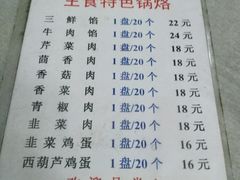 主食特色锅烙
三鲜馅 1盘/20个 22元
牛肉馅 1盘/20个 24元
芹菜肉 1盘/20个 18元
茴香肉 1盘/20个 18元
香菇肉 1盘/20个 18元
香菜肉 1盘/20个 18元
青椒肉 1盘/20个 18元
韭菜肉 1盘/20个 18元
韭菜鸡蛋 1盘/20个 16元
西葫芦鸡蛋 1盘/20个 16元